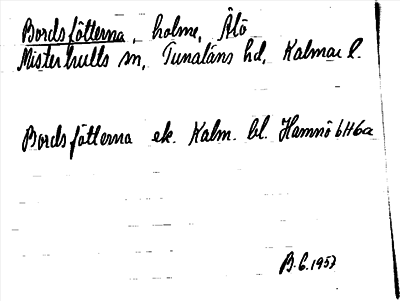 Bordsfötterna, holme, Älö
Misterhults sn, Tunaläns hd, Kalmar l.
Bordsfötterna ek. Kalm. bl. Hamnö 6H6a
B.G. 1957